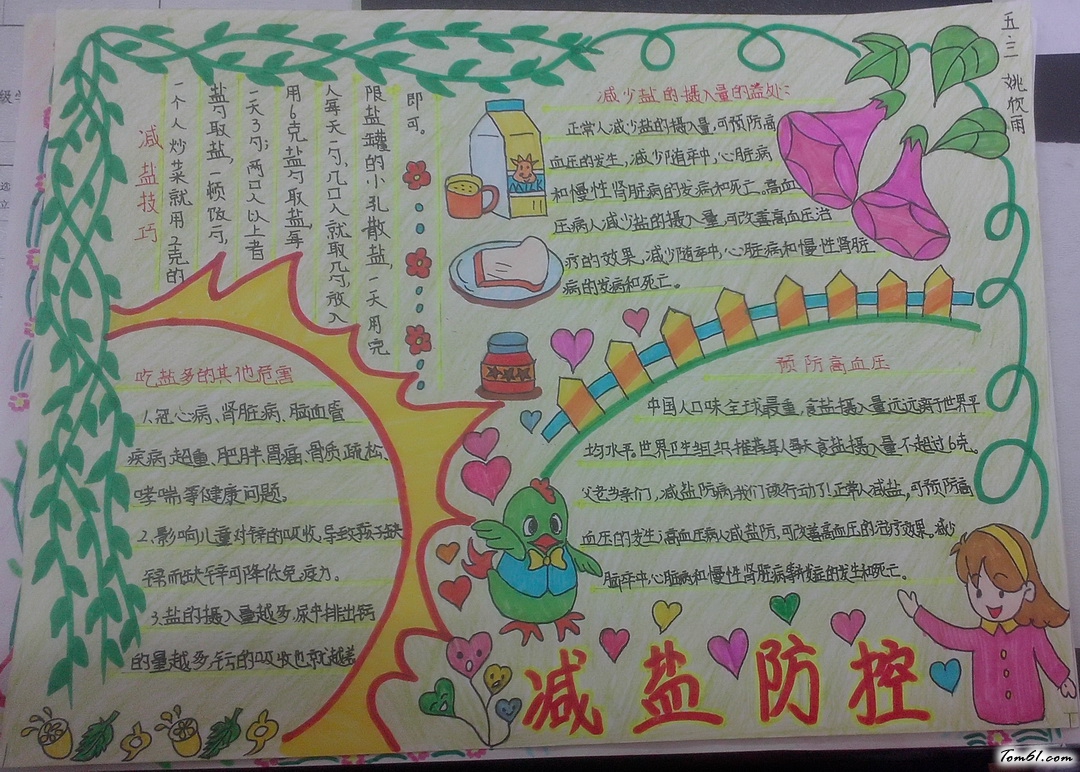 减盐防控
五.三 姚欣雨
减盐技巧
一个人炒菜就用2克的
盐勺取盐,一顿饭1勺,
一天3勺;两口人以上者
用6克盐勺取盐,每
人每天一勺,几口人就取几勺,放入
限盐罐的小孔散盐,一天用完
即可。
减少盐的摄入量的益处:
正常人减少盐的摄入量,可预防高
血压的发生,减少脑卒中,心脏病
和慢性肾脏病的发病和死亡。高血
压病人减少盐的摄入量,可改善高血压治
疗的效果,减少脑卒中,心脏病和慢性肾脏
病的发病和死亡。
MILK
吃盐多的其他危害
1.冠心病、肾脏病、脑血管
疾病、超重、肥胖、胃癌、骨质疏松、
哮喘等健康问题。
2.影响儿童对锌的吸收,导致孩子缺
锌,而缺锌可降低免疫力。
3.盐的摄入量越多,尿中排出钙
的量越多,钙的吸收也就越差
预防高血压
中国人口味全球最重,食盐摄入量远远高于世界平
均水平。世界卫生组织推荐每人每天食盐摄入量不超过6克。
父老乡亲们,减盐防病,我们该行动了!正常人减盐,可预防高
血压的发生;高血压病人减盐防,可改善高血压的治疗效果。减少
脑卒中,心脏病和慢性肾脏病等并发症的发生和死亡。
Tom61.com